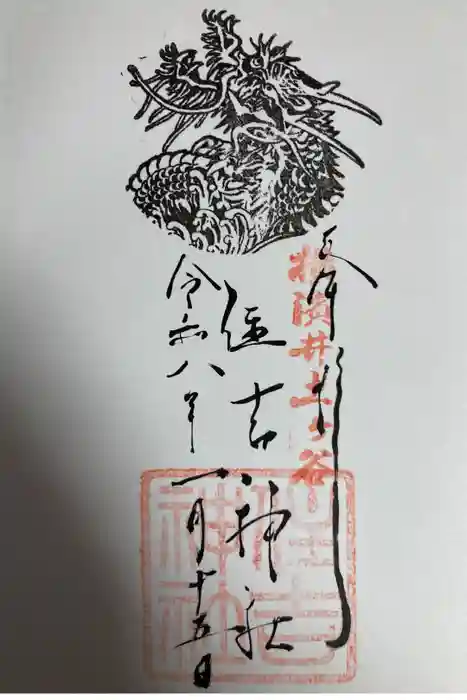 横濱井土ヶ谷
住吉神社
令和八年一月十五日
住吉神社